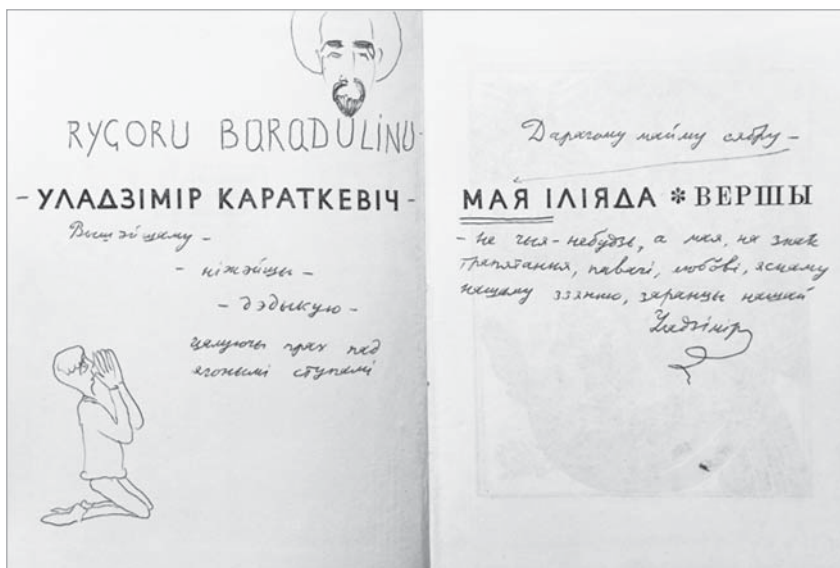 RYGORU BARADULINU-
-УЛАДЗІМІР КАРАТКЕВІЧ-
Вышэйшаму -
- ніжэйшы -
- дэдыкую -
цалуючы прах пад
ягонымі ступамі
Дарагому майму сябру -
МАЯ ІЛІЯДА * ВЕРШЫ
- не чыя-небудзь, а мая, на знак
трапятання, павагі, любові, яснаму
нашаму ззянню, заранцы нашай
Уладзімір